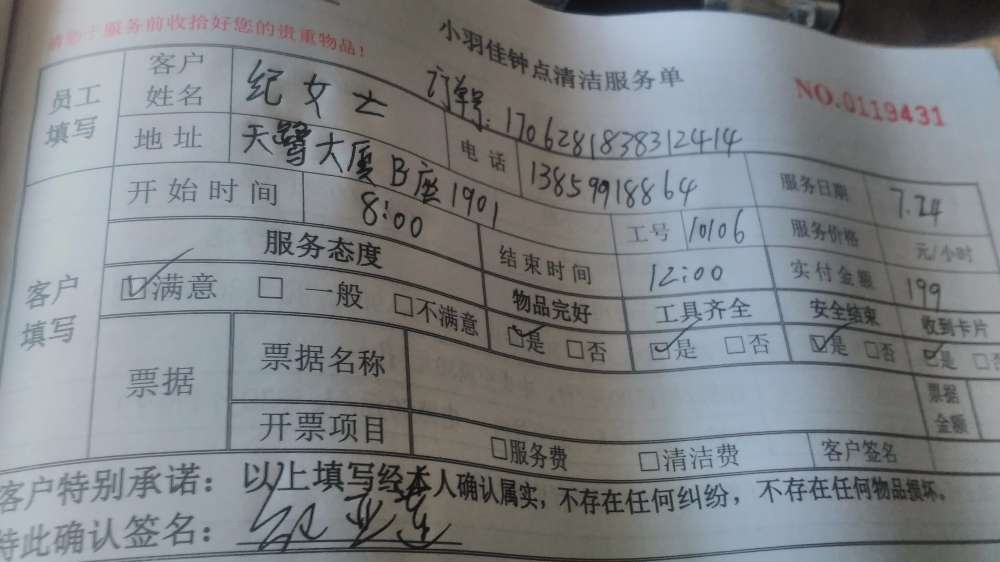 于服务前收拾好您的贵重物品!
小羽佳钟点清洁服务单
NO.0119431
订单号:1706281838312414
员工填写 客户姓名 纪女士 电话 13859918864 服务日期 7.24
地址 天鹭大厦B座1901 工号 10106 服务价格 元/小时
客户填写 开始时间 8:00 结束时间 12:00 实付金额 199
服务态度 物品完好 工具齐全 安全结束 收到卡片
☑满意 □一般 □不满意 ☑是 □否 ☑是 □否 ☑是 □否 ☑是 □
票据 票据名称 票据金额
开票项目 □服务费 □清洁费 客户签名
客户特别承诺:以上填写经本人确认属实,不存在任何纠纷,不存在任何物品损坏。
特此确认签名: